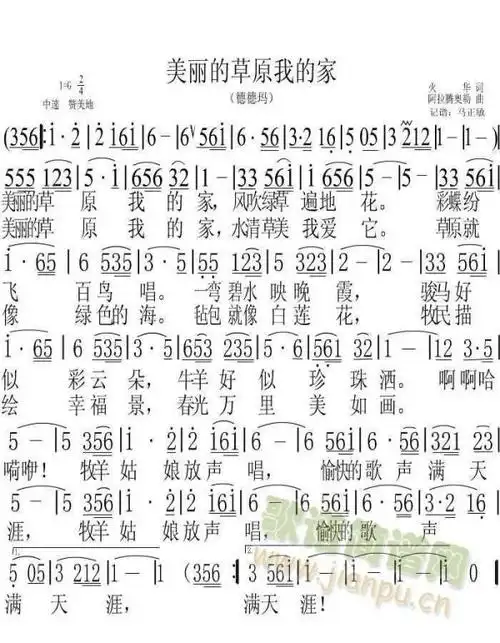 美丽的草原我的家
1=G 2/4
（德德玛）
火 华 词
中速 赞美地
阿拉腾奥勒 曲
记谱：马正敏
(356|:i·2|2 i6i|6-|6 56i|6·3|56i|6-|3·2 16|5 05|3 212|1-|1-)|
555 123|5·i|656 32|1-|33 561|2 23|5-|5-|33 56i|
美丽的草 原 我 的 家，风吹绿草 遍地 花。 彩蝶纷
美丽的草 原 我 的 家，水清草美 我爱 它。草原就
i·65|6 535|3·5|55 123|5 223|2-|2-|33 56i|
飞 百鸟 唱。一弯碧水 映晚 霞， 骏马好
像 绿色的 海。毡包就像 白莲 花， 牧民描
i·65|6 535|3·5|653 235|5·56i|32|1-|12 3·5|
似 彩云 朵，牛羊好 似 珍 珠 洒。啊啊哈
绘 幸福 景，春光万 里 美 如 画。
5-|5 356|i·2|2 i6i|6-|6 56i|6·5|356i|6-|321 23|
嗬咿！ 牧羊 姑 娘放声 唱， 愉快的 歌 声 满 天
5-|5 356|i·2|2 i6i|6-|6 56i|6·3|56i|6-|3·2 16|
涯， 牧羊 姑 娘放声 唱， 愉快的 歌 声
1. 2.
5 05|3 212|1-|1 (356:|5 05|3 212|1-|1-|1 0|
满 天 涯， 满 天 涯！
歌谱简谱网
www.jianpu.cn